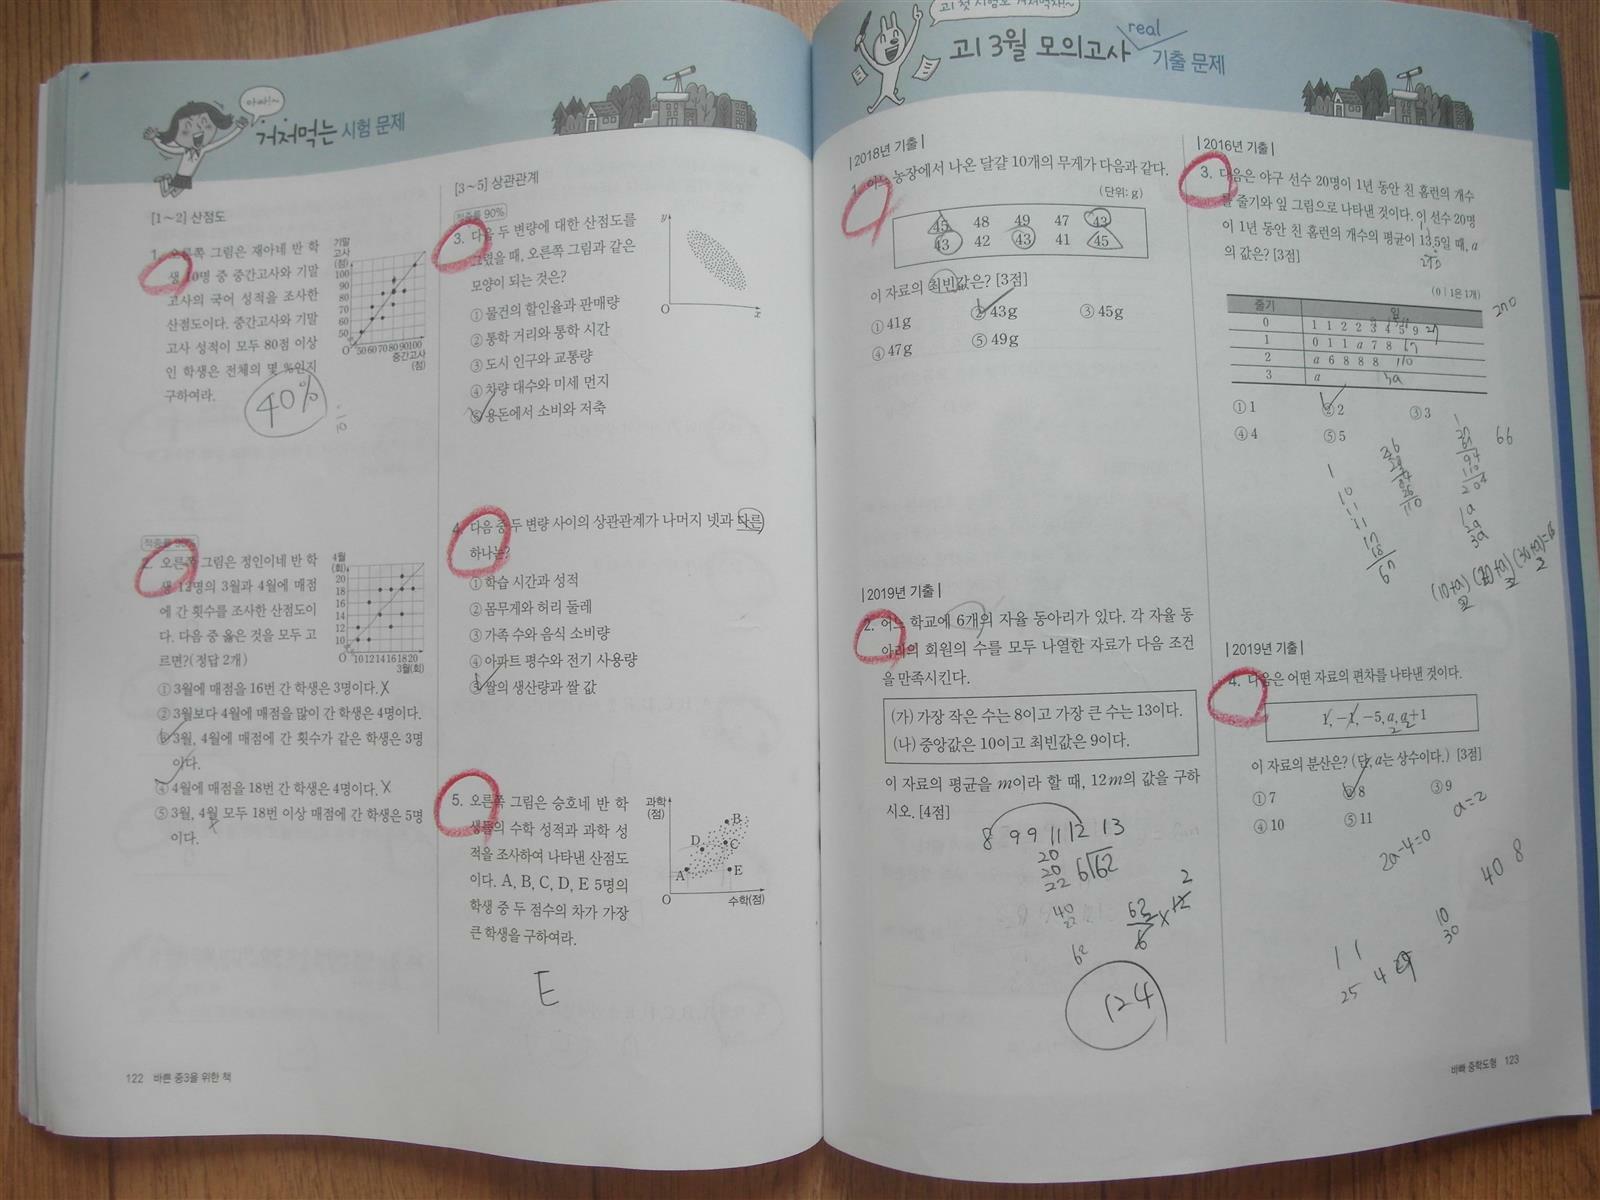 아싸!~
거저먹는 시험 문제
[1~2] 산점도
1. 오른쪽 그림은 재아네 반 학
생 10명 중 중간고사와 기말
고사의 국어 성적을 조사한
산점도이다. 중간고사와 기말
고사 성적이 모두 80점 이상
인 학생은 전체의 몇 %인지
구하여라.
기말
고사
(점)
100
90
80
70
60
50
O 50 60 70 80 90 100
중간고사
(점)
40%
적중률 95%
2. 오른쪽 그림은 정인이네 반 학
생 12명의 3월과 4월에 매점
에 간 횟수를 조사한 산점도이
다. 다음 중 옳은 것을 모두 고
르면? (정답 2개)
4월
(회)
20
18
16
14
12
10
O 10 12 14 16 18 20
3월(회)
① 3월에 매점을 16번 간 학생은 3명이다. X
② 3월보다 4월에 매점을 많이 간 학생은 4명이다.
③ 3월, 4월에 매점에 간 횟수가 같은 학생은 3명
이다.
④ 4월에 매점을 18번 간 학생은 4명이다. X
⑤ 3월, 4월 모두 18번 이상 매점에 간 학생은 5명
이다. X
[3~5] 상관관계
적중률 90%
3. 다음 두 변량에 대한 산점도를
그렸을 때, 오른쪽 그림과 같은
모양이 되는 것은?
y
O
x
① 물건의 할인율과 판매량
② 통학 거리와 통학 시간
③ 도시 인구와 교통량
④ 차량 대수와 미세 먼지
⑤ 용돈에서 소비와 저축
4. 다음 중 두 변량 사이의 상관관계가 나머지 넷과 다른
하나는?
① 학습 시간과 성적
② 몸무게와 허리 둘레
③ 가족 수와 음식 소비량
④ 아파트 평수와 전기 사용량
⑤ 쌀의 생산량과 쌀 값
5. 오른쪽 그림은 승호네 반 학
생들의 수학 성적과 과학 성
적을 조사하여 나타낸 산점도
이다. A, B, C, D, E 5명의
학생 중 두 점수의 차가 가장
큰 학생을 구하여라.
과학
(점)
B
D
C
A
E
O
수학(점)
E
122 바쁜 중3을 위한 책
고1 첫 시험도 거저먹자!~
고1 3월 모의고사 real 기출 문제
| 2018년 기출 |
1. 어느 농장에서 나온 달걀 10개의 무게가 다음과 같다.
(단위: g)
45 48 49 47 43
43 42 43 41 45
이 자료의 최빈값은? [3점]
① 41g ② 43g ③ 45g
④ 47g ⑤ 49g
| 2019년 기출 |
2. 어느 학교에 6개의 자율 동아리가 있다. 각 자율 동
아리의 회원의 수를 모두 나열한 자료가 다음 조건
을 만족시킨다.
(가) 가장 작은 수는 8이고 가장 큰 수는 13이다.
(나) 중앙값은 10이고 최빈값은 9이다.
이 자료의 평균을 m이라 할 때, 12m의 값을 구하
시오. [4점]
8 9 9 11 12 13
20
20
22
6 62
40
22
62
62
6 × 12
2
124
| 2016년 기출 |
3. 다음은 야구 선수 20명이 1년 동안 친 홈런의 개수
를 줄기와 잎 그림으로 나타낸 것이다. 이 선수 20명
이 1년 동안 친 홈런의 개수의 평균이 13.5일 때, a
의 값은? [3점]
(0|1은 1개)
270
줄기 잎
0 1 1 2 2 3 4 5 9 27
1 0 1 1 a 7 8
2 a 6 8 8 8 110
3 a 3a
① 1 ② 2 ③ 3
④ 4 ⑤ 5
66
204
| 2019년 기출 |
4. 다음은 어떤 자료의 편차를 나타낸 것이다.
1, -1, -5, a, a+1
이 자료의 분산은? (단, a는 상수이다.) [3점]
① 7 ② 8 ③ 9
④ 10 ⑤ 11
a=2
2a-4=0
40 8
10
30
1 1
25 4
바빠 중학도형 123